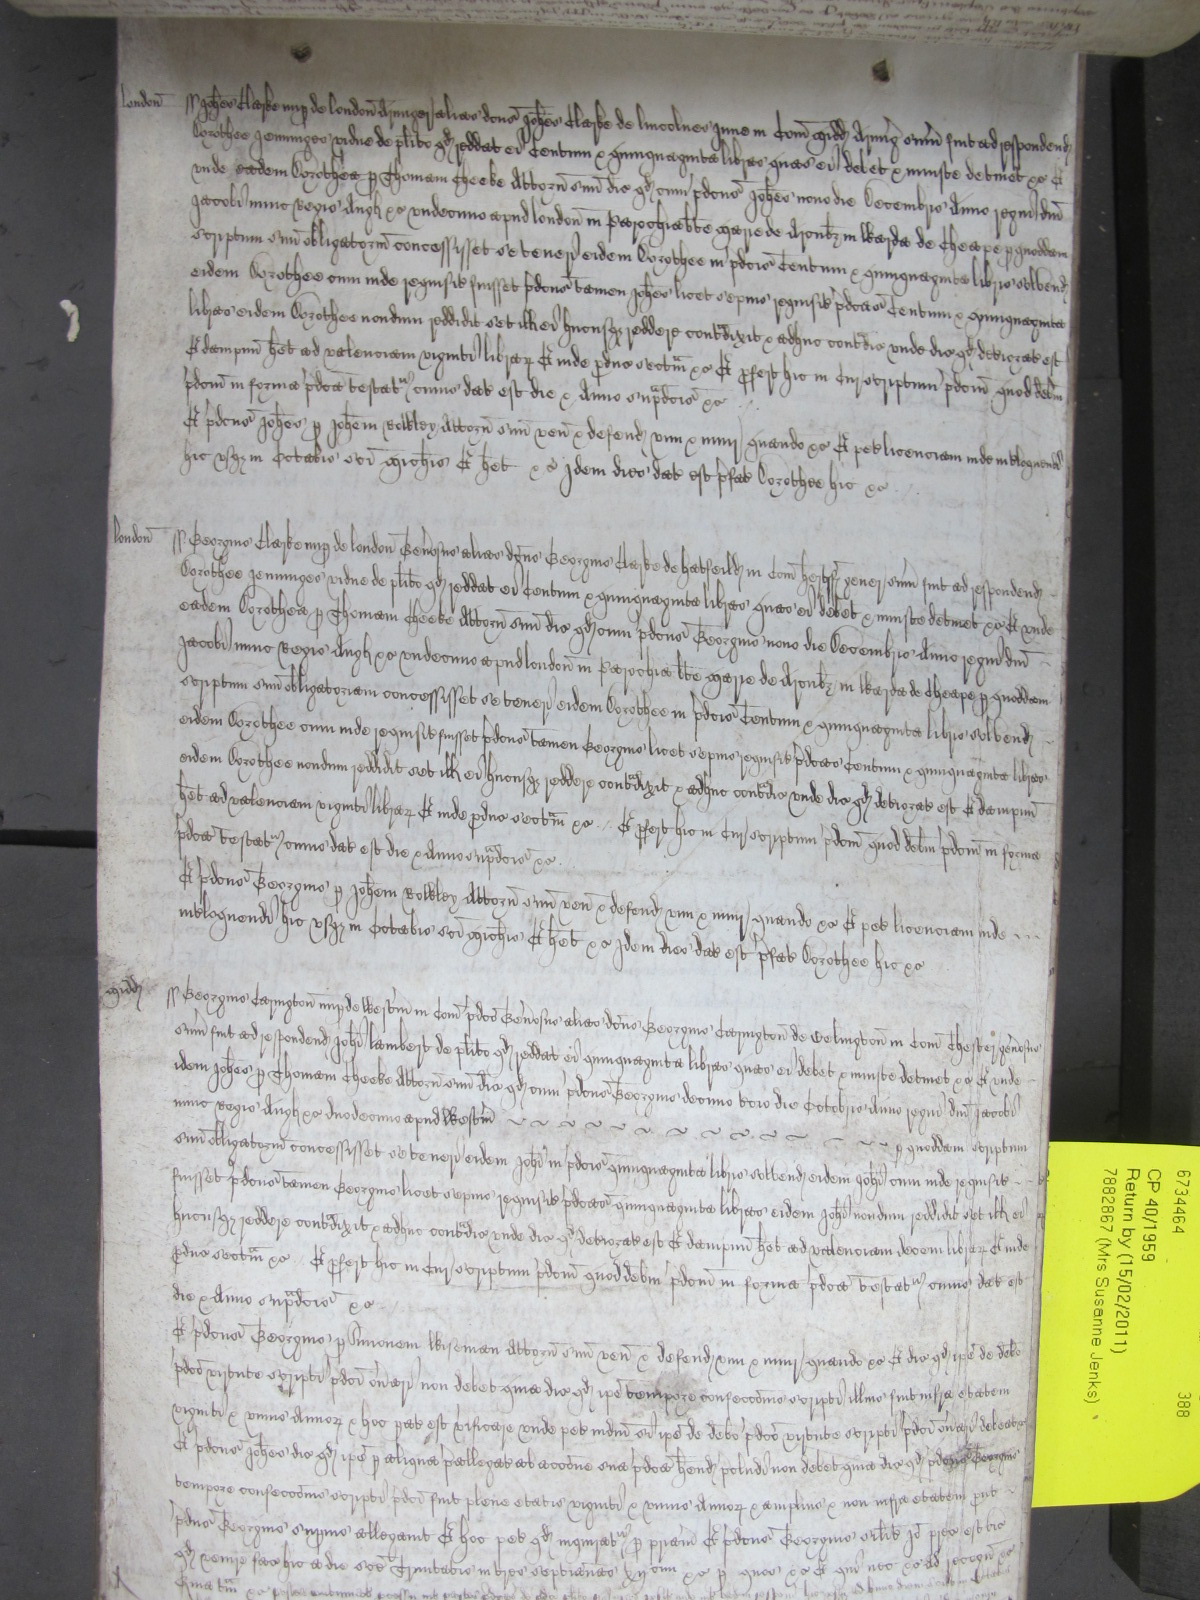 london ss Joh̄es Clarke nup̄ de london Armiger alias dc̄us Joh̄es Clarke de lincolnes Inne in Com̄ Midd Armiḡ sum̄ fuit ad respondend
Dorothee Jenninges vidue de pl̄ito qd reddat ei Centum & quinquaginta libras quas ei debet & iniuste detinet &c Et
unde eadem Dorothea p Thomam Cheeke Attorn̄ suū dic̄ qd cum pdc̄us Joh̄es nono die Decembris Anno regni dn̄i
Jacobi nunc Regis Angl̄ &c undecimo apud london in Parochia bt̄e Marie de Arcub in Warda de Cheape p quoddam
scriptum suū obligatoriū concessisset se teneri eidem Dorothee in pdc̄is Centum & quinquaginta libris solvend
eidem Dorothee cum inde requisit fuisset pdc̄us tamen Joh̄es licet sepius requisit pdc̄as Centum & quinquaginta
libras eidem Dorothee nondum reddidit set ill̄ ei hucusq reddere contradixit & adhuc contradic̄ unde dic̄ qd deteriorat est
Et dampnū h̄et ad valenciam viginti librar̄ Et inde pduc̄ sectam &c Et pfert hic in Cur̄ scriptum pdc̄m quod debitū
pdc̄m in forma pdc̄a testat̄ cuius dat est die & Anno supradc̄is &c
Et pdc̄us Joh̄es p Joh̄em Rolkley Attorn̄ suū ven̄ & defend vim & iniur̄ quando &c Et pet licenciam inde interloquendi
hic usq in Octabis sc̄i Mich̄is Et h̄et &c Idem dies dat est p̄fat Dorothee hic &c
london ss Georgius Clarke nup̄ de london Gen̄osus alias dc̄us Georgius Clarke de hatfeild in Com̄ hertf̄ gener̄ sum̄ fuit ad respondend
Dorothee Jenninges vidue de pl̄ito qd reddat ei Centum & quinquaginta libras quas ei debet & iniuste detinet &c Et unde
eadem Dorothea p Thomam Cheeke Attorn̄ suū dic̄ qd cum pdc̄us Georgius nono die Decembris Anno regni dn̄i
Jacobi nunc Regis Angl̄ &c undecimo apud london in Parochia bt̄e Marie de Arcub in Warda de Cheape p quoddam
scriptum suū obligatorium concessisset se teneri eidem Dorothee in pdc̄is Centum & quinquaginta libris solvend
eidem Dorothee cum inde requisit fuisset pdc̄us tamen Georgius licet sepius requisit pdc̄as Centum & quinquaginta libras
eidem Dorothee nondum reddidit set ill̄ ei hucusq reddere contradixit & adhuc contradic̄ unde dic̄ qd deteriorat est Et dampnū
h̄et ad valenciam viginti librar̄ Et inde pduc̄ sectam &c Et pfert hic in Cur̄ scriptum pdc̄m quod debitū pdc̄m in forma
pdc̄a testat̄ cuius dat est die & Anno supradc̄is &c
Et pdc̄us Georgius p Joh̄em Rolkley Attorn̄ suū ven̄ & defend vim & iniur̄ quando &c Et pet licenciam inde
interloquendi hic usq in Octabis sc̄i Mich̄is Et h̄et &c Idem dies dat est p̄fat Dorothee hic &c
Midd ss Georgius Carington nup̄ de Westm̄ in Com̄ pdc̄o Gen̄osus alias dc̄us Georgius Carington de in Com̄ Chester gen̄osus
sum̄ fuit ad respondend Joh̄i lambert de pl̄ito qd reddat ei quinquaginta libras quas ei debet & iniuste detinet &c Et unde
idem Joh̄es p Thomam Cheeke Attorn̄ suū dic̄ qd cum pdc̄us Georgius decimo die Octobris Anno regni dn̄i Jacobi
nunc Regis Angl̄ &c duodecimo apud Westm̄ p quoddam scriptum
suū obligatoriū concessisset se teneri eidem Joh̄i in pdc̄is quinquaginta libris solvend eidem Joh̄i cum inde requisit
fuisset pdc̄us tamen Georgius licet sepius requisit pdc̄as quinquaginta libras eidem Joh̄i nondum reddidit set ill̄ ei
hucusq reddere contradixit & adhuc contradic̄ unde dic̄ qd deteriorat est Et dampnū h̄et ad valenciam decem librar̄ Et inde
pduc̄ sectam &c Et pfert hic in Cur̄ scriptum pdc̄m quod debitū pdc̄m in forma pdc̄a testat̄ cuius dat est
die & Anno supradc̄is &c
Et pdc̄us Georgius p Simonem Wiseman Attorn̄ suū ven̄ & defend vim & iniur̄ quando &c Et dic̄ qd ip̄e de debito
pdc̄o virtute scripti pdc̄i on̄ari non debet quia dic̄ qd ip̄e tempore confecc̄ōis scripti illius fuit infra etatem
viginti & unius Annor̄ & hoc parat est v̄ificare unde pet iudiciū si ip̄e de debito pdc̄o virtute scripti pdc̄i on̄ari debeat &c
Et pdc̄us Joh̄es dic̄ qd ip̄e p aliqua p̄allegat ab acc̄ōe sua pdc̄a h̄end p̄cludi non debet quia dic̄ qd pdc̄us Georgius
tempore confecc̄ōis scripti pdc̄i fuit plene etatis viginti & unius Annor̄ & amplius & non infra etatem prout
pdc̄us Georgius supius allegavit Et hoc pet qd inquirat̄ p pr̄iam Et pdc̄us Georgius similit̄ Io p̄cept est vic̄
qd venire fac̄ hic a die sc̄e Trinitatis in tres septimanas xij cum &c p quos &c Et qui nec &c ad recogn̄ &c
Quia tam &c
6734464 388
CP 40/1959
Return by (15/02/2011)
7882867 (Mrs Susanne Jenks)